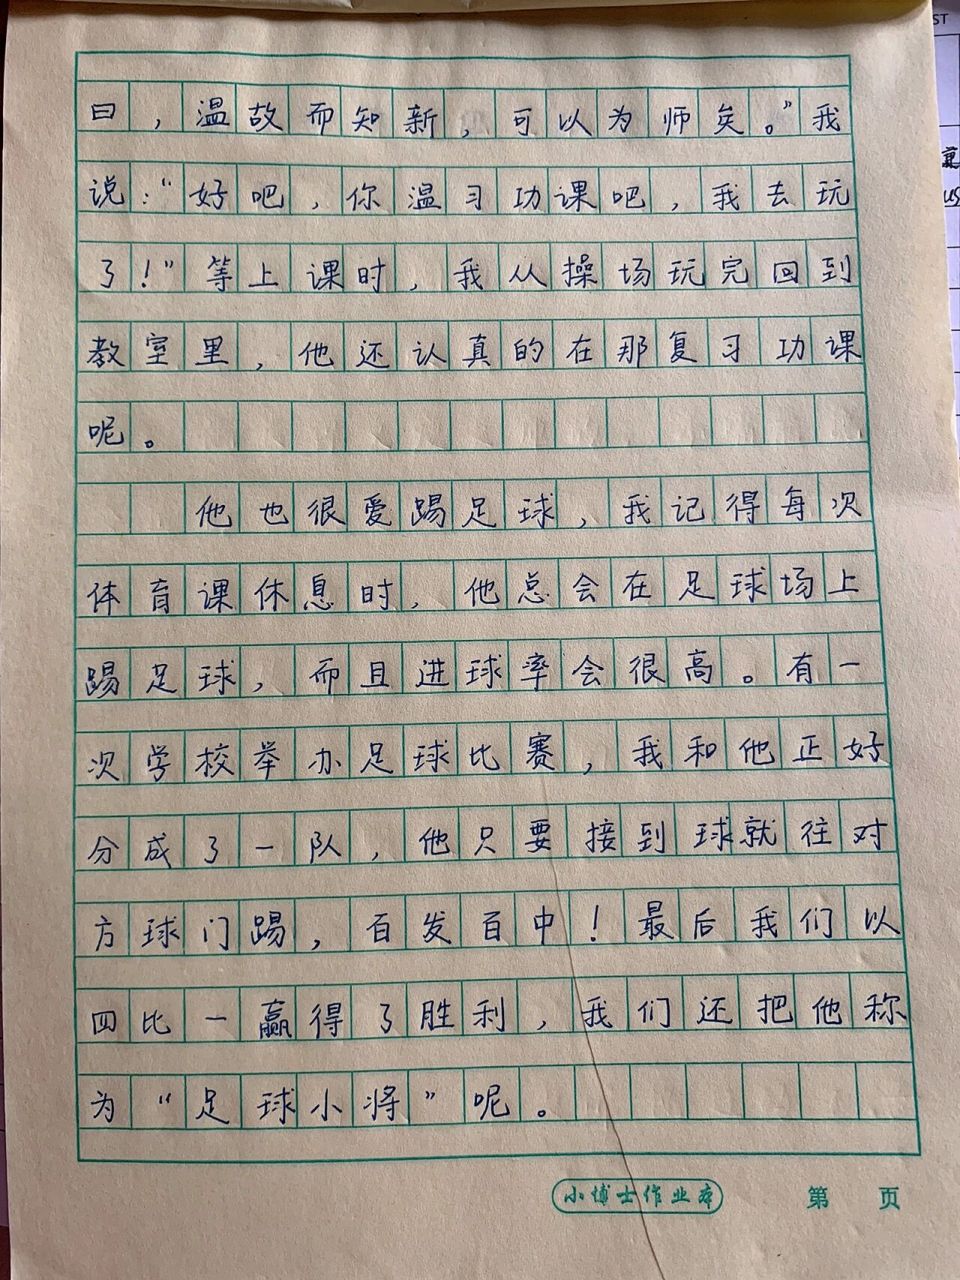 曰，温故而知新，可以为师矣。”我
说：“好吧，你温习功课吧，我去玩
了！”等上课时，我从操场玩完回到
教室里，他还认真的在那复习功课
呢。
他也很爱踢足球，我记得每次
体育课休息时，他总会在足球场上
踢足球，而且进球率会很高。有一
次学校举办足球比赛，我和他正好
分成了一队，他只要接到球就往对
方球门踢，百发百中！最后我们以
四比一赢得了胜利，我们还把他称
为“足球小将”呢。
小博士作业本
第 页
ST
US